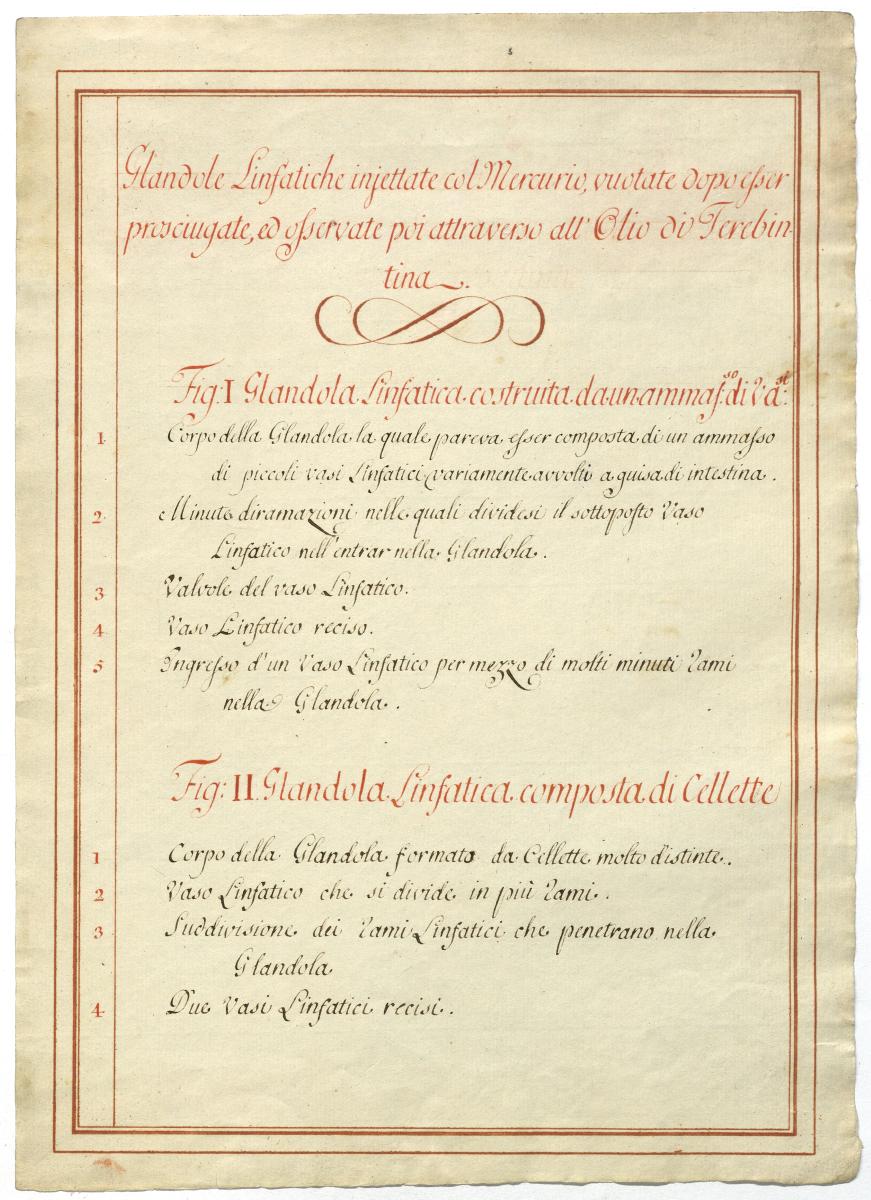 Glandole Linfatiche injettate col Mercurio, vuotate dopo esser
prosciugate, ed osservate poi attraverso all' Olio di Terebin-
tina.
Fig: I Glandola Linfatica costruita da un ammas:so di Va:si
1 Corpo della Glandola la quale pareva esser composta di un ammasso
di piccoli vasi Linfatici variamente avvolti a guisa di intestina.
2 Minute diramazioni nelle quali dividesi il sottoposto Vaso
Linfatico nell'entrar nella Glandola.
3 Valvole del vaso Linfatico.
4 Vaso Linfatico reciso.
5 Ingresso d'un Vaso Linfatico per mezzo di molti minuti rami
nella Glandola.
Fig: II Glandola Linfatica composta di Cellette
1 Corpo della Glandola formato da Cellette molto distinte.
2 Vaso Linfatico che si divide in più rami.
3 Suddivisione dei rami Linfatici che penetrano nella
Glandola
4 Due Vasi Linfatici recisi.